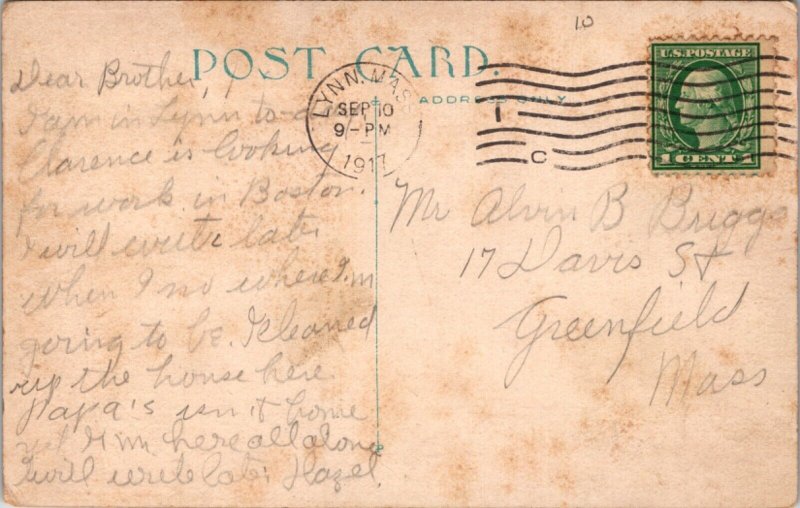 10
POST CARD.
U.S. POSTAGE
1 CENT 1
LYNN, MASS
SEP 10
9-PM
191
ADDRESS ONLY
1
C
Dear Brother,
I am in Lynn to day
Clarence is looking
for work in Boston.
I will write later
when I no where I'm
going to be. I cleaned
up the house here.
Papa's isn't home
yet I'm here all alone
will write later Hazel.
Mr Alvin B Briggs
17 Davis St
Greenfield
Mass